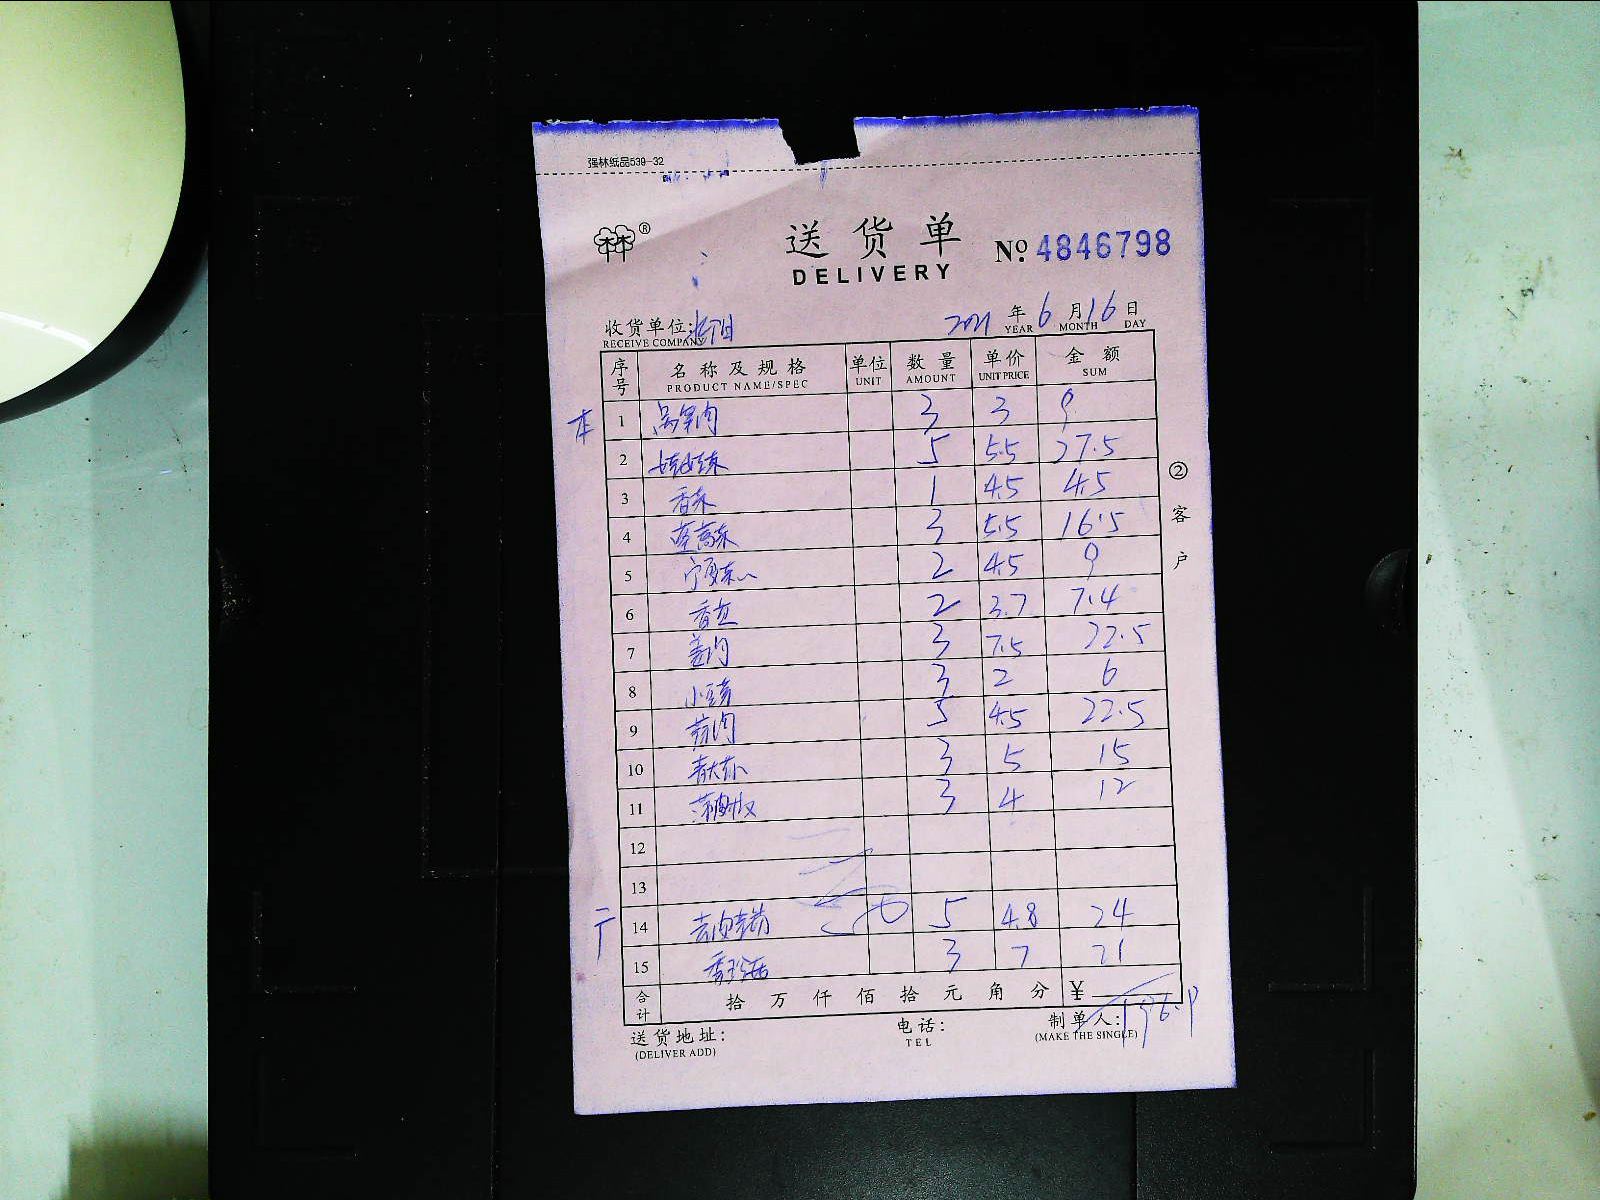 强林纸品539-32
林®
送货单 No. 4846798
DELIVERY
收货单位: 2021年6月16日
RECEIVE COMPANY YEAR MONTH DAY
序号 名称及规格 单位 数量 单价 金额
PRODUCT NAME/SPEC UNIT AMOUNT UNIT PRICE SUM
本 1 3 3 9
2 娃娃菜 5 5.5 27.5
3 香菜 1 4.5 4.5
4 茼蒿菜 3 5.5 16.5
5 宁夏菜心 2 4.5 9
6 2 3.7 7.4
7 姜肉 3 7.5 22.5
8 小豆芽 3 2 6
9 蒜肉 5 4.5 22.5
10 3 5 15
11 3 4 12
12
13
14 去皮青笋 5 4.8 24
15 3 7 21
合计 拾万仟佰拾元角分 ¥ 196.9
② 客户
送货地址: 电话: 制单人:
(DELIVER ADD) TEL (MAKE THE SINGLE)